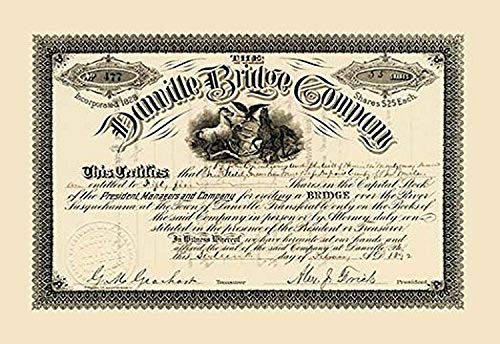 THE
Danville Bridge Company
No 477
55 SHARES
Incorporated 1828
Shares $25 Each.
This Certifies
that
entitled to Fifty five Shares in the Capital Stock
of the President, Managers and Company for erecting a BRIDGE over the River
Susquehanna at the Town of Danville. Transferable only on the Books of
the said Company in person or by Attorney duly con-
stituted in the presence of the President or Treasurer.
In Witness Whereof, we have hereunto set our hands and
affixed the seal of the said Company at Danville, Pa.
this day of 1892
G. M. Gearhart Treasurer
Alex. J. President